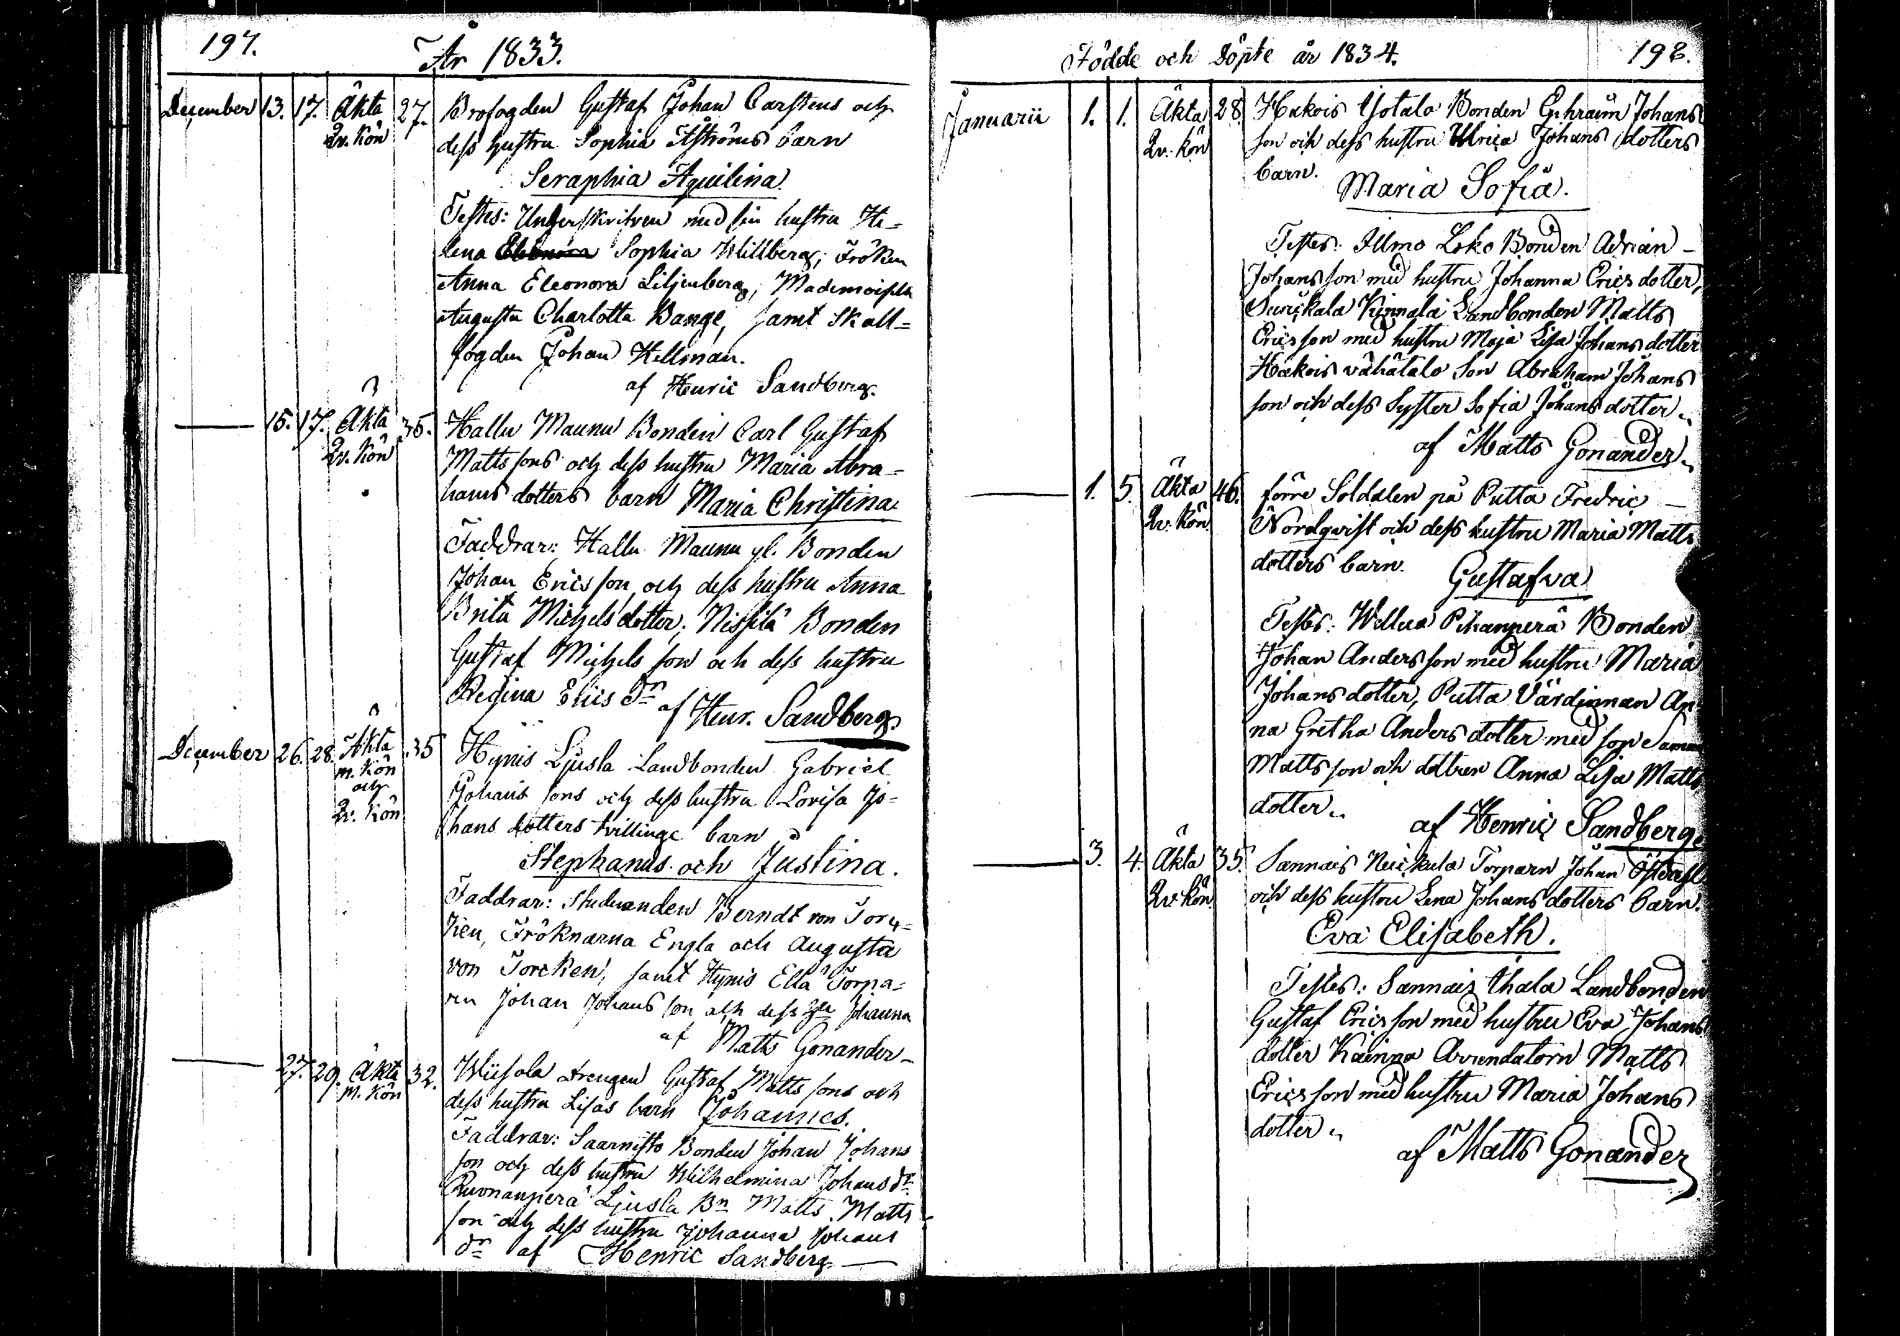 197. År 1833.
December 13. 17. Äkta 27. Brofogden Gustaf Johan Carstens och
Qv. Kön dess hustru Sophia Åströms barn
Seraphia Aquilina.
Testes: Underskrifven med sin hustru He-
lena Eleonora Sophia Willberg, Fröken
Anna Eleonora Liljenberg, Mademoiselle
Augusta Charlotta Bange, samt Skall-
fogden Johan Hellman.
af Henric Sandberg.
15. 17. Äkta 36. Hallu Maunu Bonden Carl Gustaf
Qv. Kön Matts sons och dess hustru Maria Abra-
hams dotters barn Maria Christina.
Faddrar: Hallu Maunu gl. Bonden
Johan Ericsson och dess hustru Anna
Brita Michelsdotter, Nissilä Bonden
Gustaf Michels son och dess hustru
Regina Erics dr
af Henr. Sandberg.
December 26. 28. Äkta 35 Hynis Ljusla Landbonden Gabriel
m. Kön
och
Qv. Kön
Johans sons och dess hustru Lovisa Jo-
hans dotters tvillinge barn
Stephanus och Justina.
Faddrar: Studeranden Berndt von Torc-
ken, Fröknarna Engla och Augusta
von Torcken, samt Hynis Ella Torpa-
ren Johan Johans son och dess Johanna
af Matts Gonander
27. 29. Äkta 32. Wiisola drengen Gustaf Matts sons och
m. Kön dess hustru Lisas barn Johannes.
Faddrar: Saarnisto Bonden Johan Johans
son och dess hustru Wilhelmina Johans dr
Ruonanperä Ljusla Bn Matts Matts
son och dess hustru Johanna Johans
dr af Henric Sandberg
Födde och Döpte år 1834. 198.
Januarii 1. 1. Äkta 28. Hakois Yotalo Bonden Ephraim Johans
Qv. Kön son och dess hustru Ulrica Johans dotters
barn.
Maria Sofia.
Testes: Illmo Loko Bonden Adrian
Johans son med hustru Johanna Erics dotter,
Kinnala Landbonden Matts
Ericsson med hustru Maja Lisa Johans dotter
Hakois vähätalo Son Abraham Johans
son och dess Syster Sofia Johans dotter.
af Matts Gonander
1. 5. Äkta 46. förre Soldaten på Putta Fredric
Qv. Kön Nordqwist och dess hustru Maria Matts
dotters barn.
Gustafva
Testes: Wellua Pihanperä Bonden
Johan Andersson med hustru Maria
Johans dotter, Putta Värdinnan An-
na Gretha Anders dotter med son
Matts son och dottren Anna Lisa Matts
dotter
af Henric Sandberg
3. 4. Äkta 35. Sannais Torparn Johan
Qv. Kön och dess hustru Lena Johans dotters barn.
Eva Elisabeth.
Testes: Sannais Landbonden
Gustaf Ericsson med hustru Eva Johans
dotter Arrendatorn Matts
Ericsson med hustru Maria Johans
dotter
af Matts Gonander